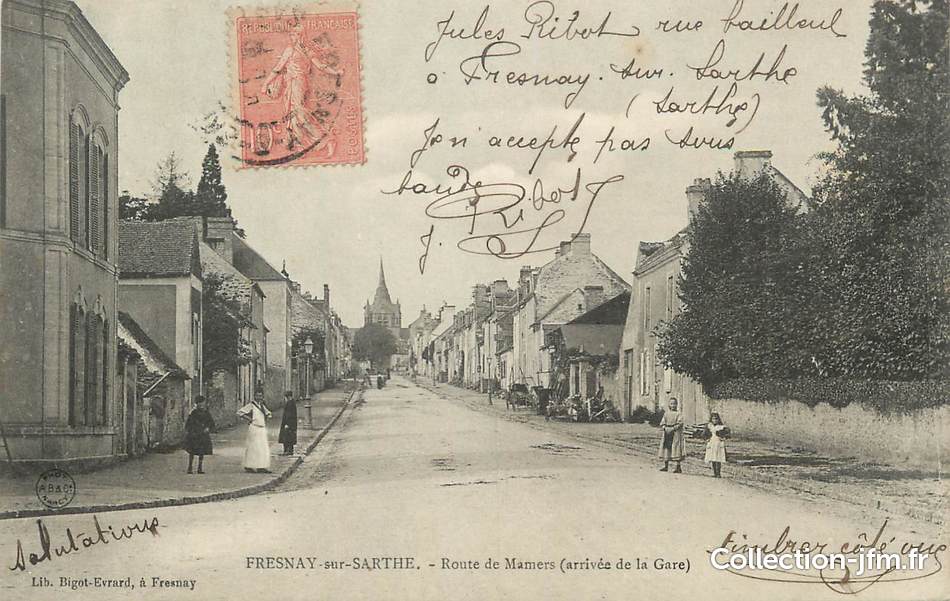 Jules Ribot rue bailleul
à Fresnay-sur-Sarthe
(Sarthe)
J'en accepte pas sous
bande Ribot J
J.
RÉPUBLIQUE FRANÇAISE
10
POSTES
Salutations
timbrer côté vue
FRESNAY-sur-SARTHE. - Route de Mamers (arrivée de la Gare)
Lib. Bigot-Evrard, à Fresnay
Collection-jfm.fr